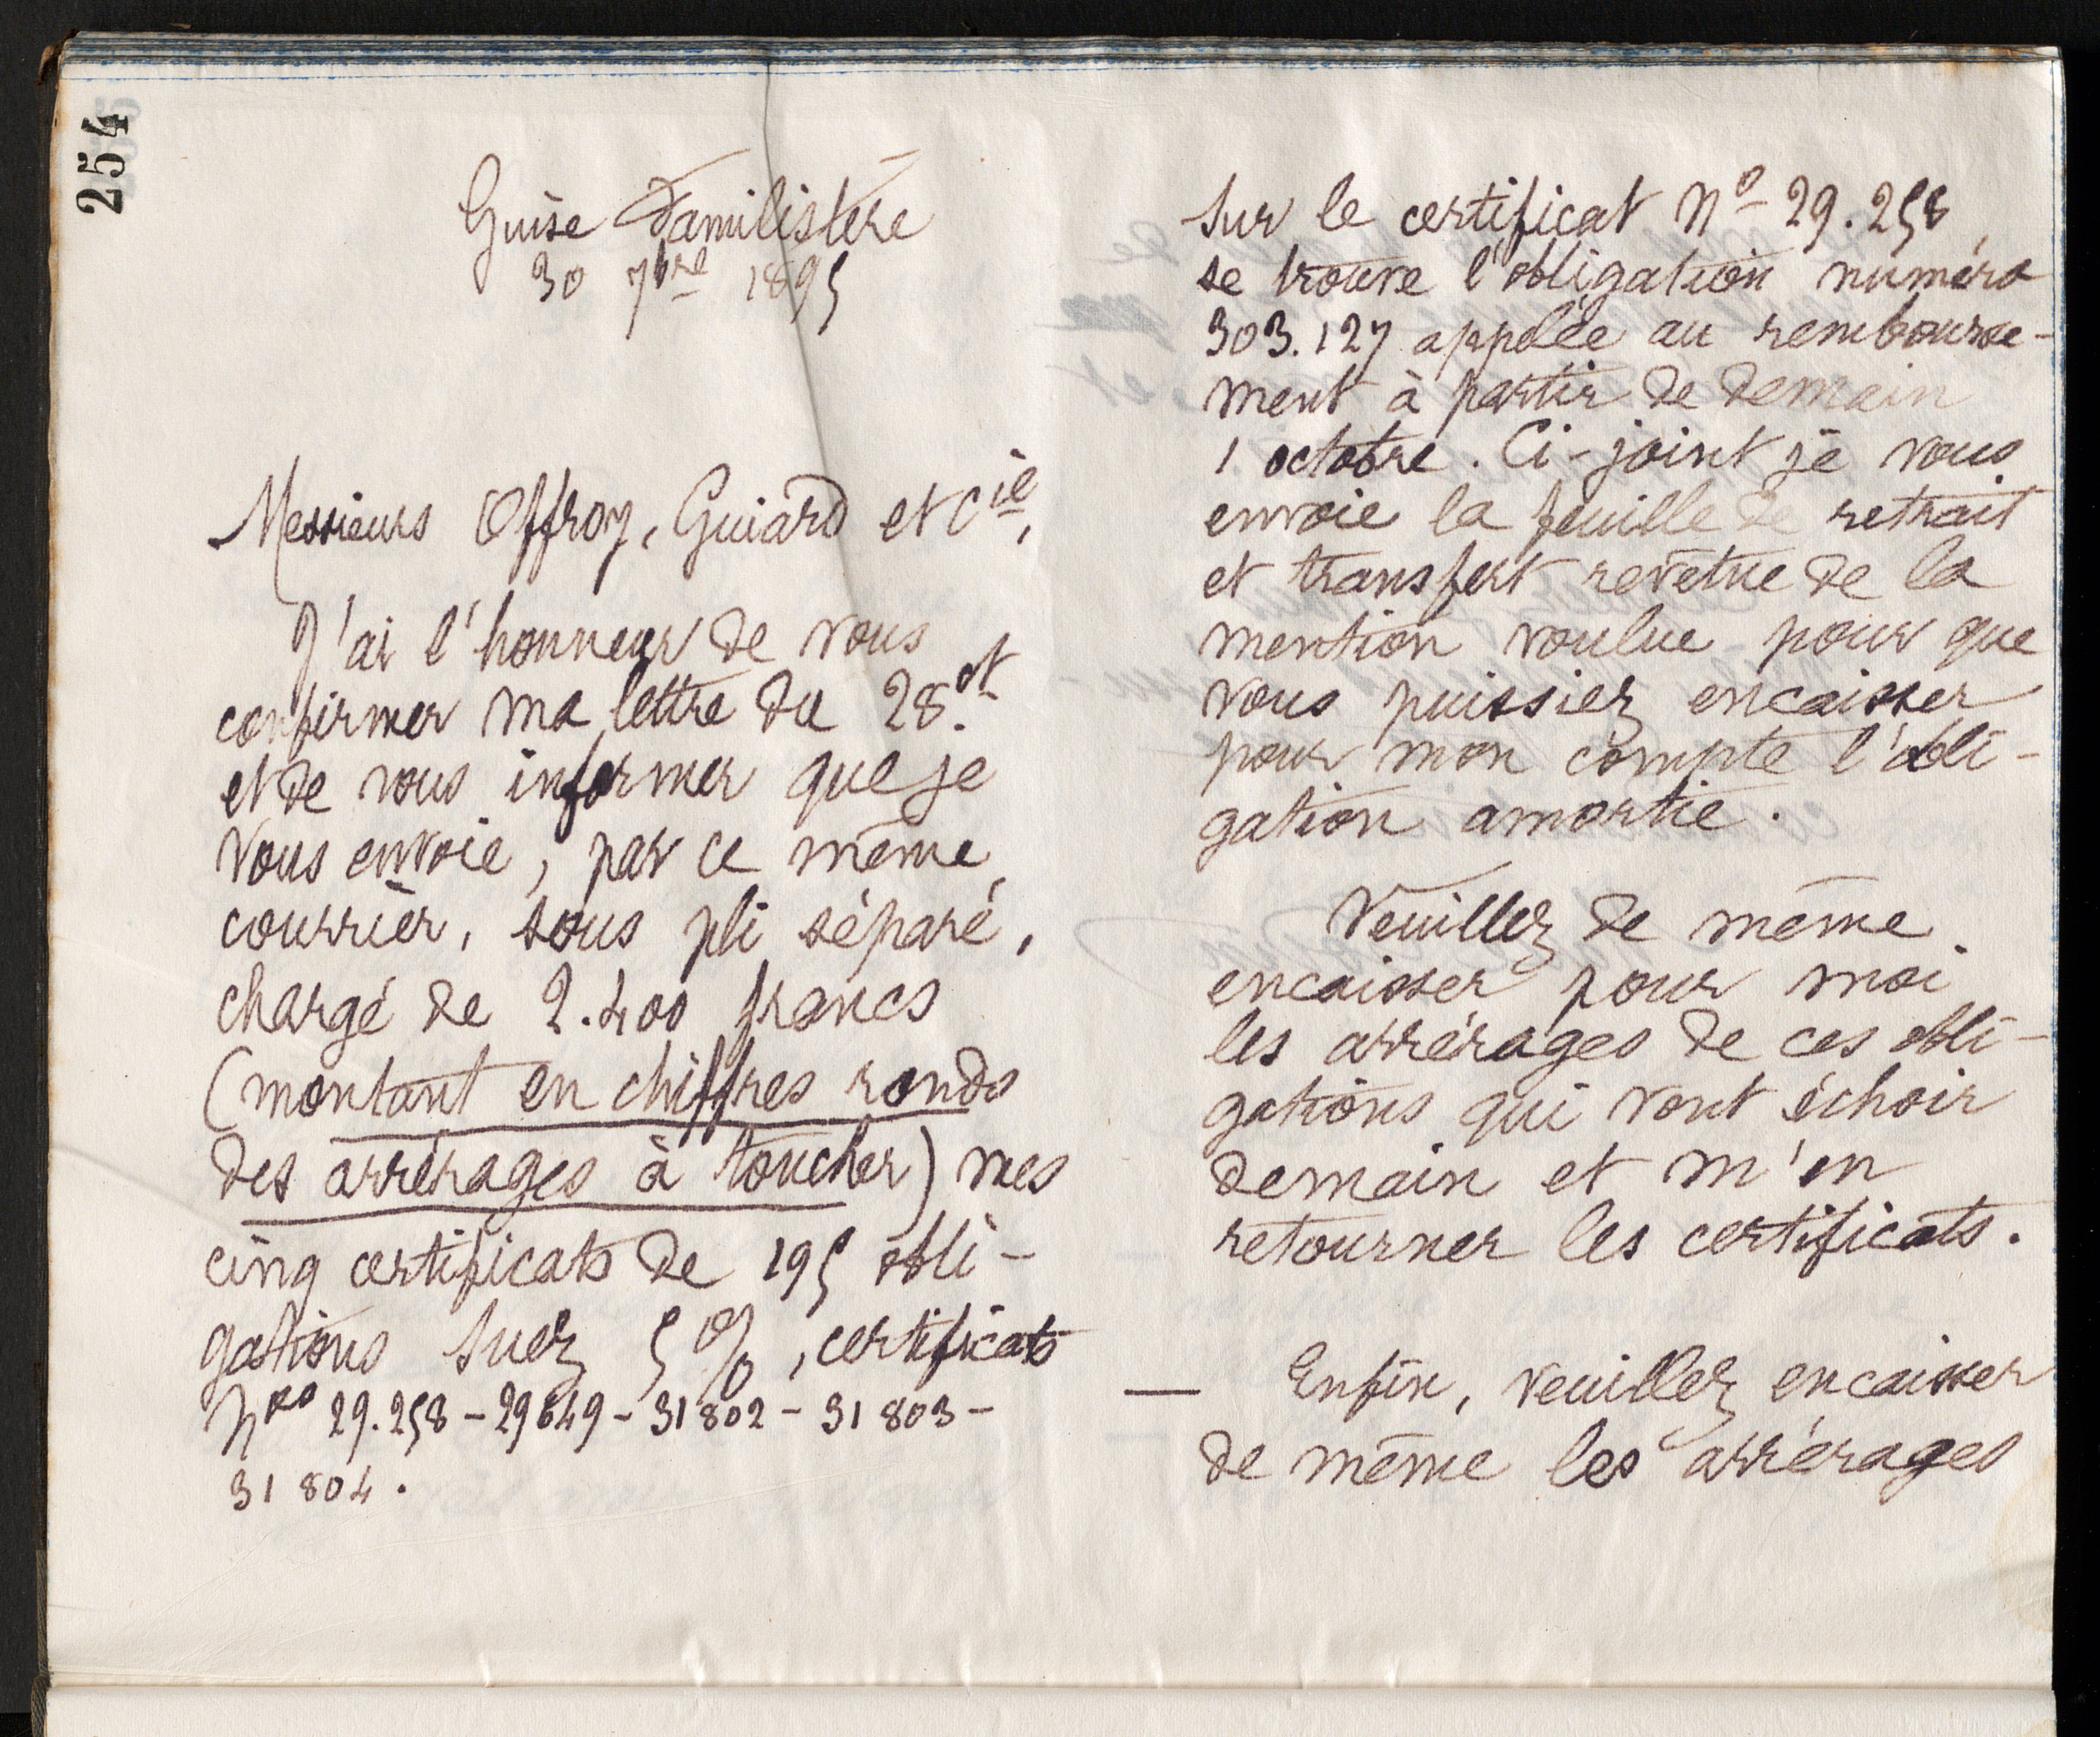 254
Guise Familistère
30 7bre 1895
Messieurs Offroy, Guiard et Cie,
J'ai l'honneur de vous
confirmer ma lettre du 28 ct
et de vous informer que je
vous envoie, par ce même
courrier, sous pli séparé,
chargé de 2.400 francs
(montant en chiffres ronds
des arrérages à toucher) mes
cinq certificats de 195 obli-
gations Suez 5 %, certificats
Nos 29.258 - 29649 - 31802 - 31803 -
31804.
Sur le certificat No 29.258
se trouve l'obligation numéro
303.127 appelée au rembourse-
ment à partir de demain
1 octobre. Ci-joint je vous
envoie la feuille de retrait
et transfert revêtue de la
mention voulue pour que
vous puissiez encaisser
pour mon compte l'obli-
gation amortie.
Veuillez de même
encaisser pour moi
les arrérages de ces obli-
gations qui vont échoir
demain et m'en
retourner les certificats.
— Enfin, veuillez encaisser
de même les arrérages